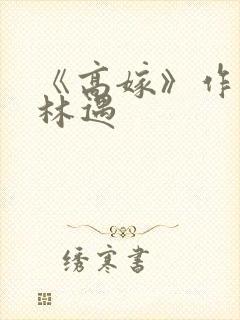 《高嫁》作
林遇
绣寒书